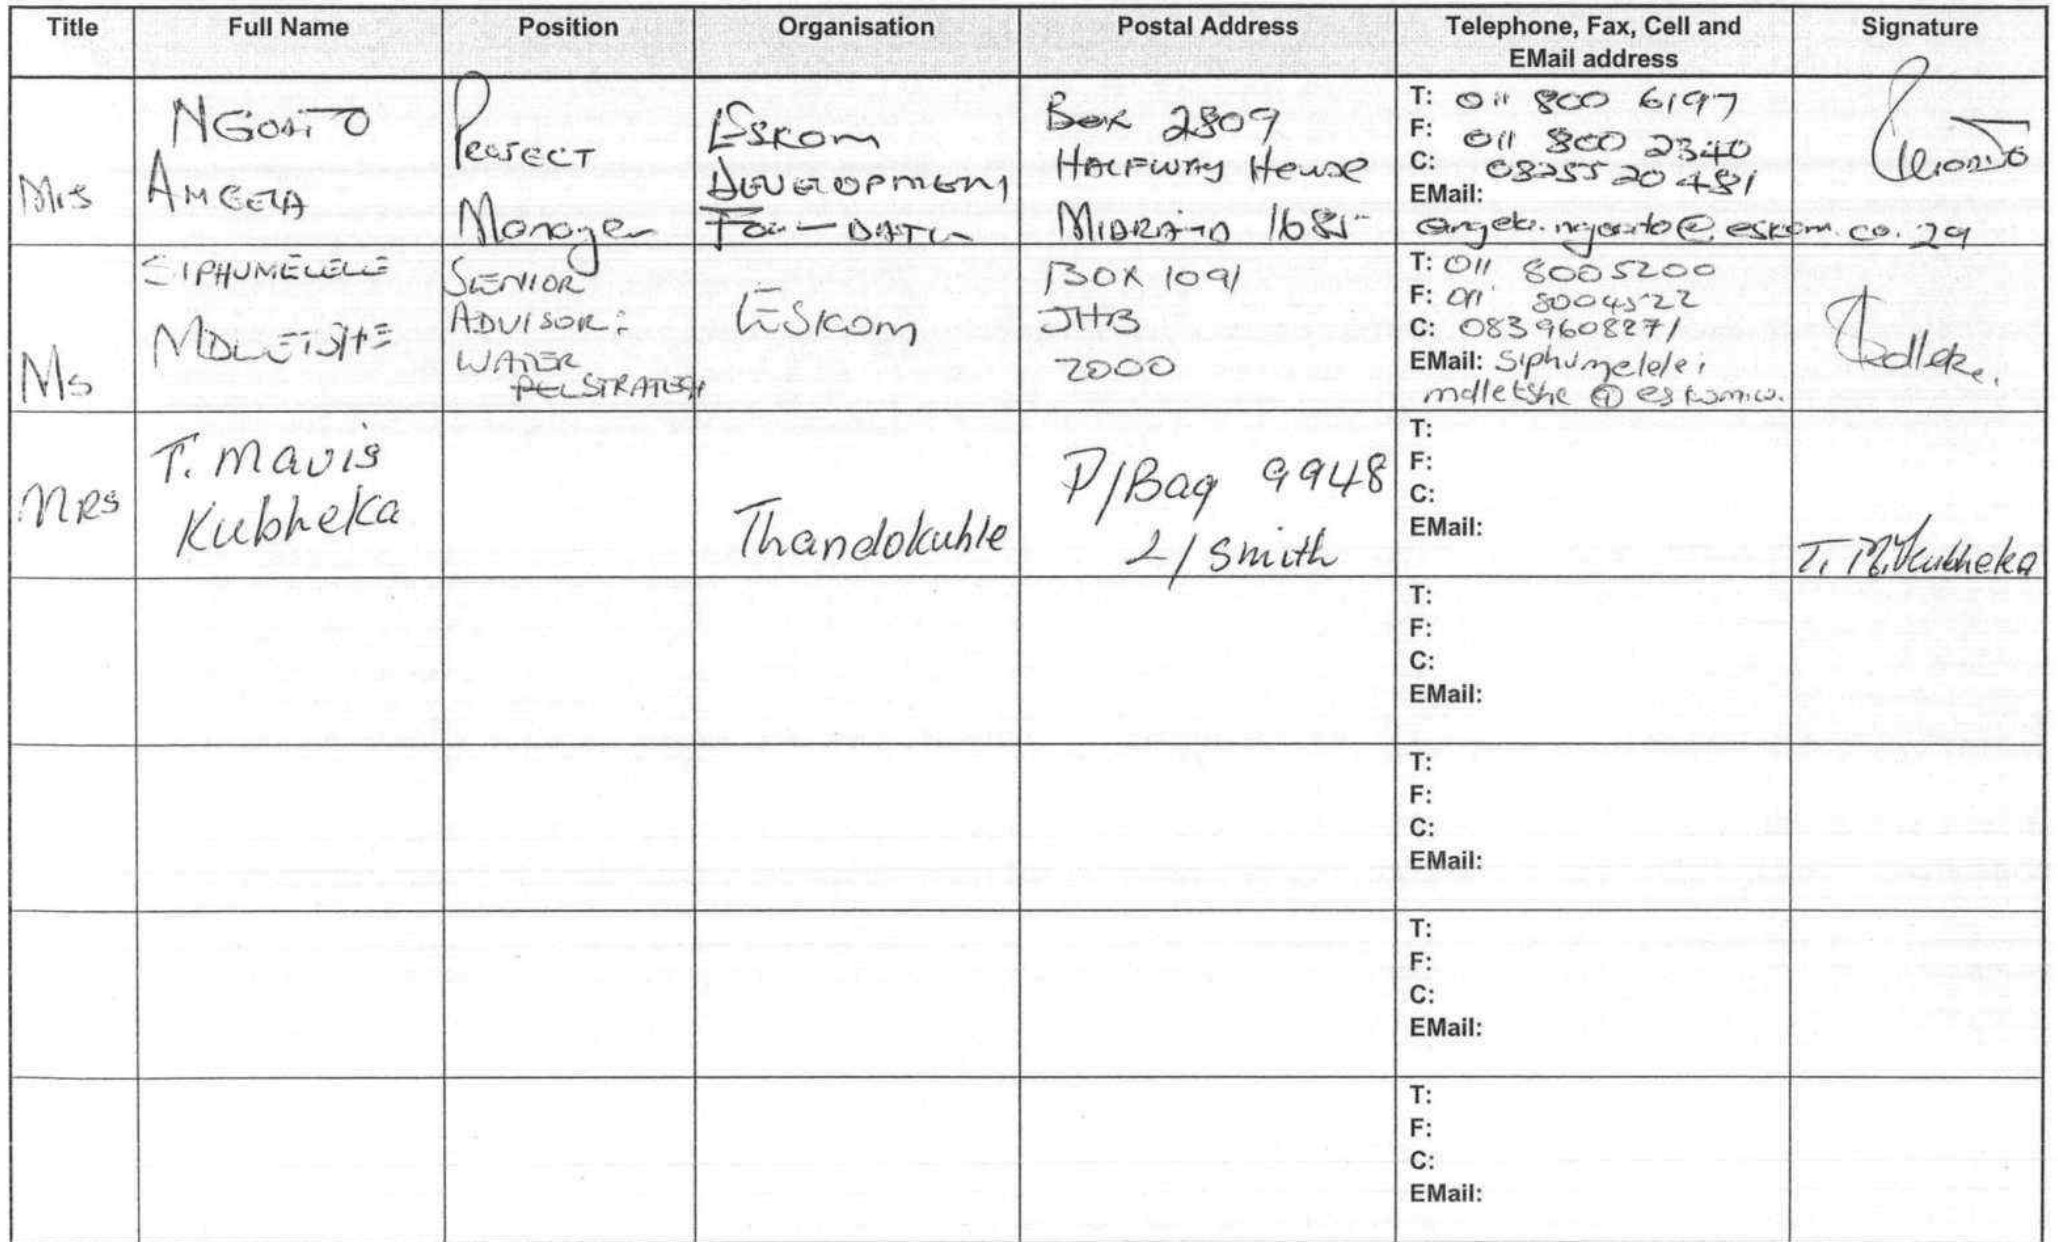 Title Full Name Position Organisation Postal Address Telephone, Fax, Cell and EMail address Signature
Mrs
NGOAITO
ANGELA
Project
Manager
ESKOM
DEVELOPMENT
Box 2809
HALFWAY House
MIDRAND 1685
T: 011 800 6197
F: 011 800 2340
C: 0825520481
EMail:
@ eskom.co.za
Ms
SIPHUMELELE
MDLETSHE
SENIOR
ADVISOR:
WATER
ESKOM
BOX 1091
JHB
2000
T: 011 8005200
F: 011 8004522
C: 0839608271
EMail: Siphumelele;
mdletshe @
MRS
T. Mavis
Kubheka
Thandokuhle
P/Bag 9948
L/Smith
T:
F:
C:
EMail:
T. M. Kubheka
T:
F:
C:
EMail:
T:
F:
C:
EMail:
T:
F:
C:
EMail:
T:
F:
C:
EMail: